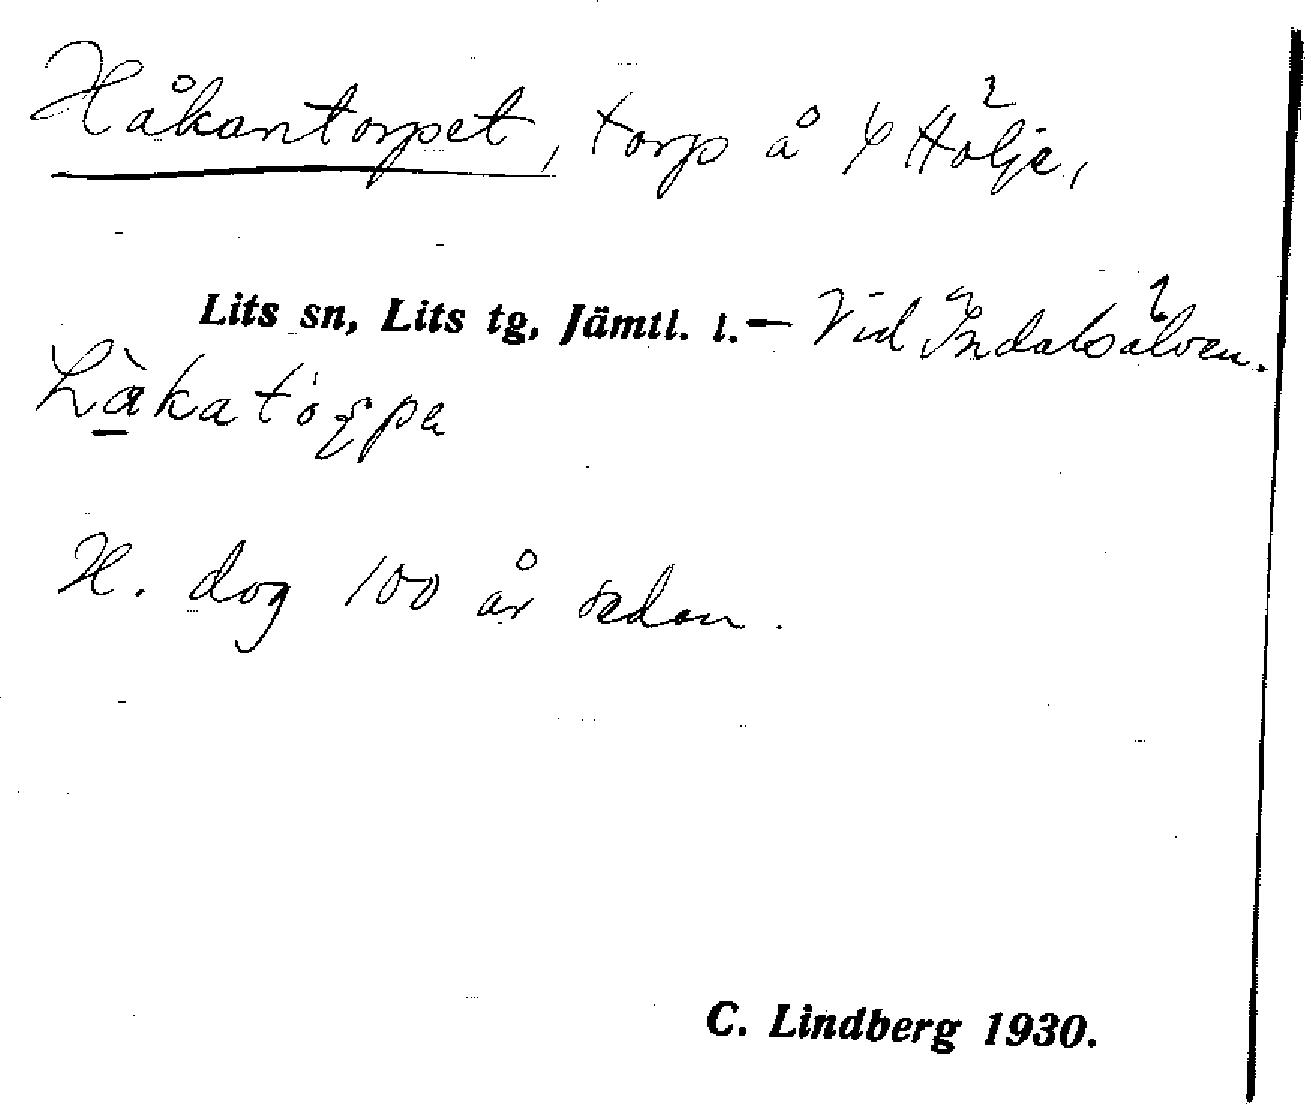 Håkantorpet, torp å Hölje,
Lits sn, Lits tg, Jämtl. l. – Vid Indalsälven.
H. dog 100 år sedan.
C. Lindberg 1930.